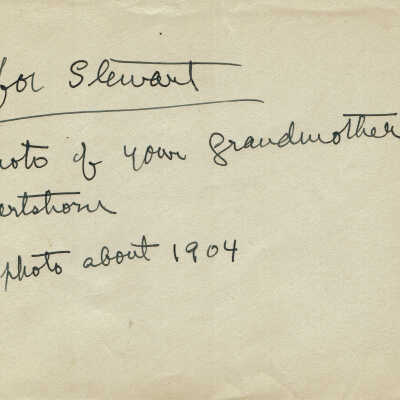 for Stewart
hoto of your grandmother
ertshorn
photo about 1904